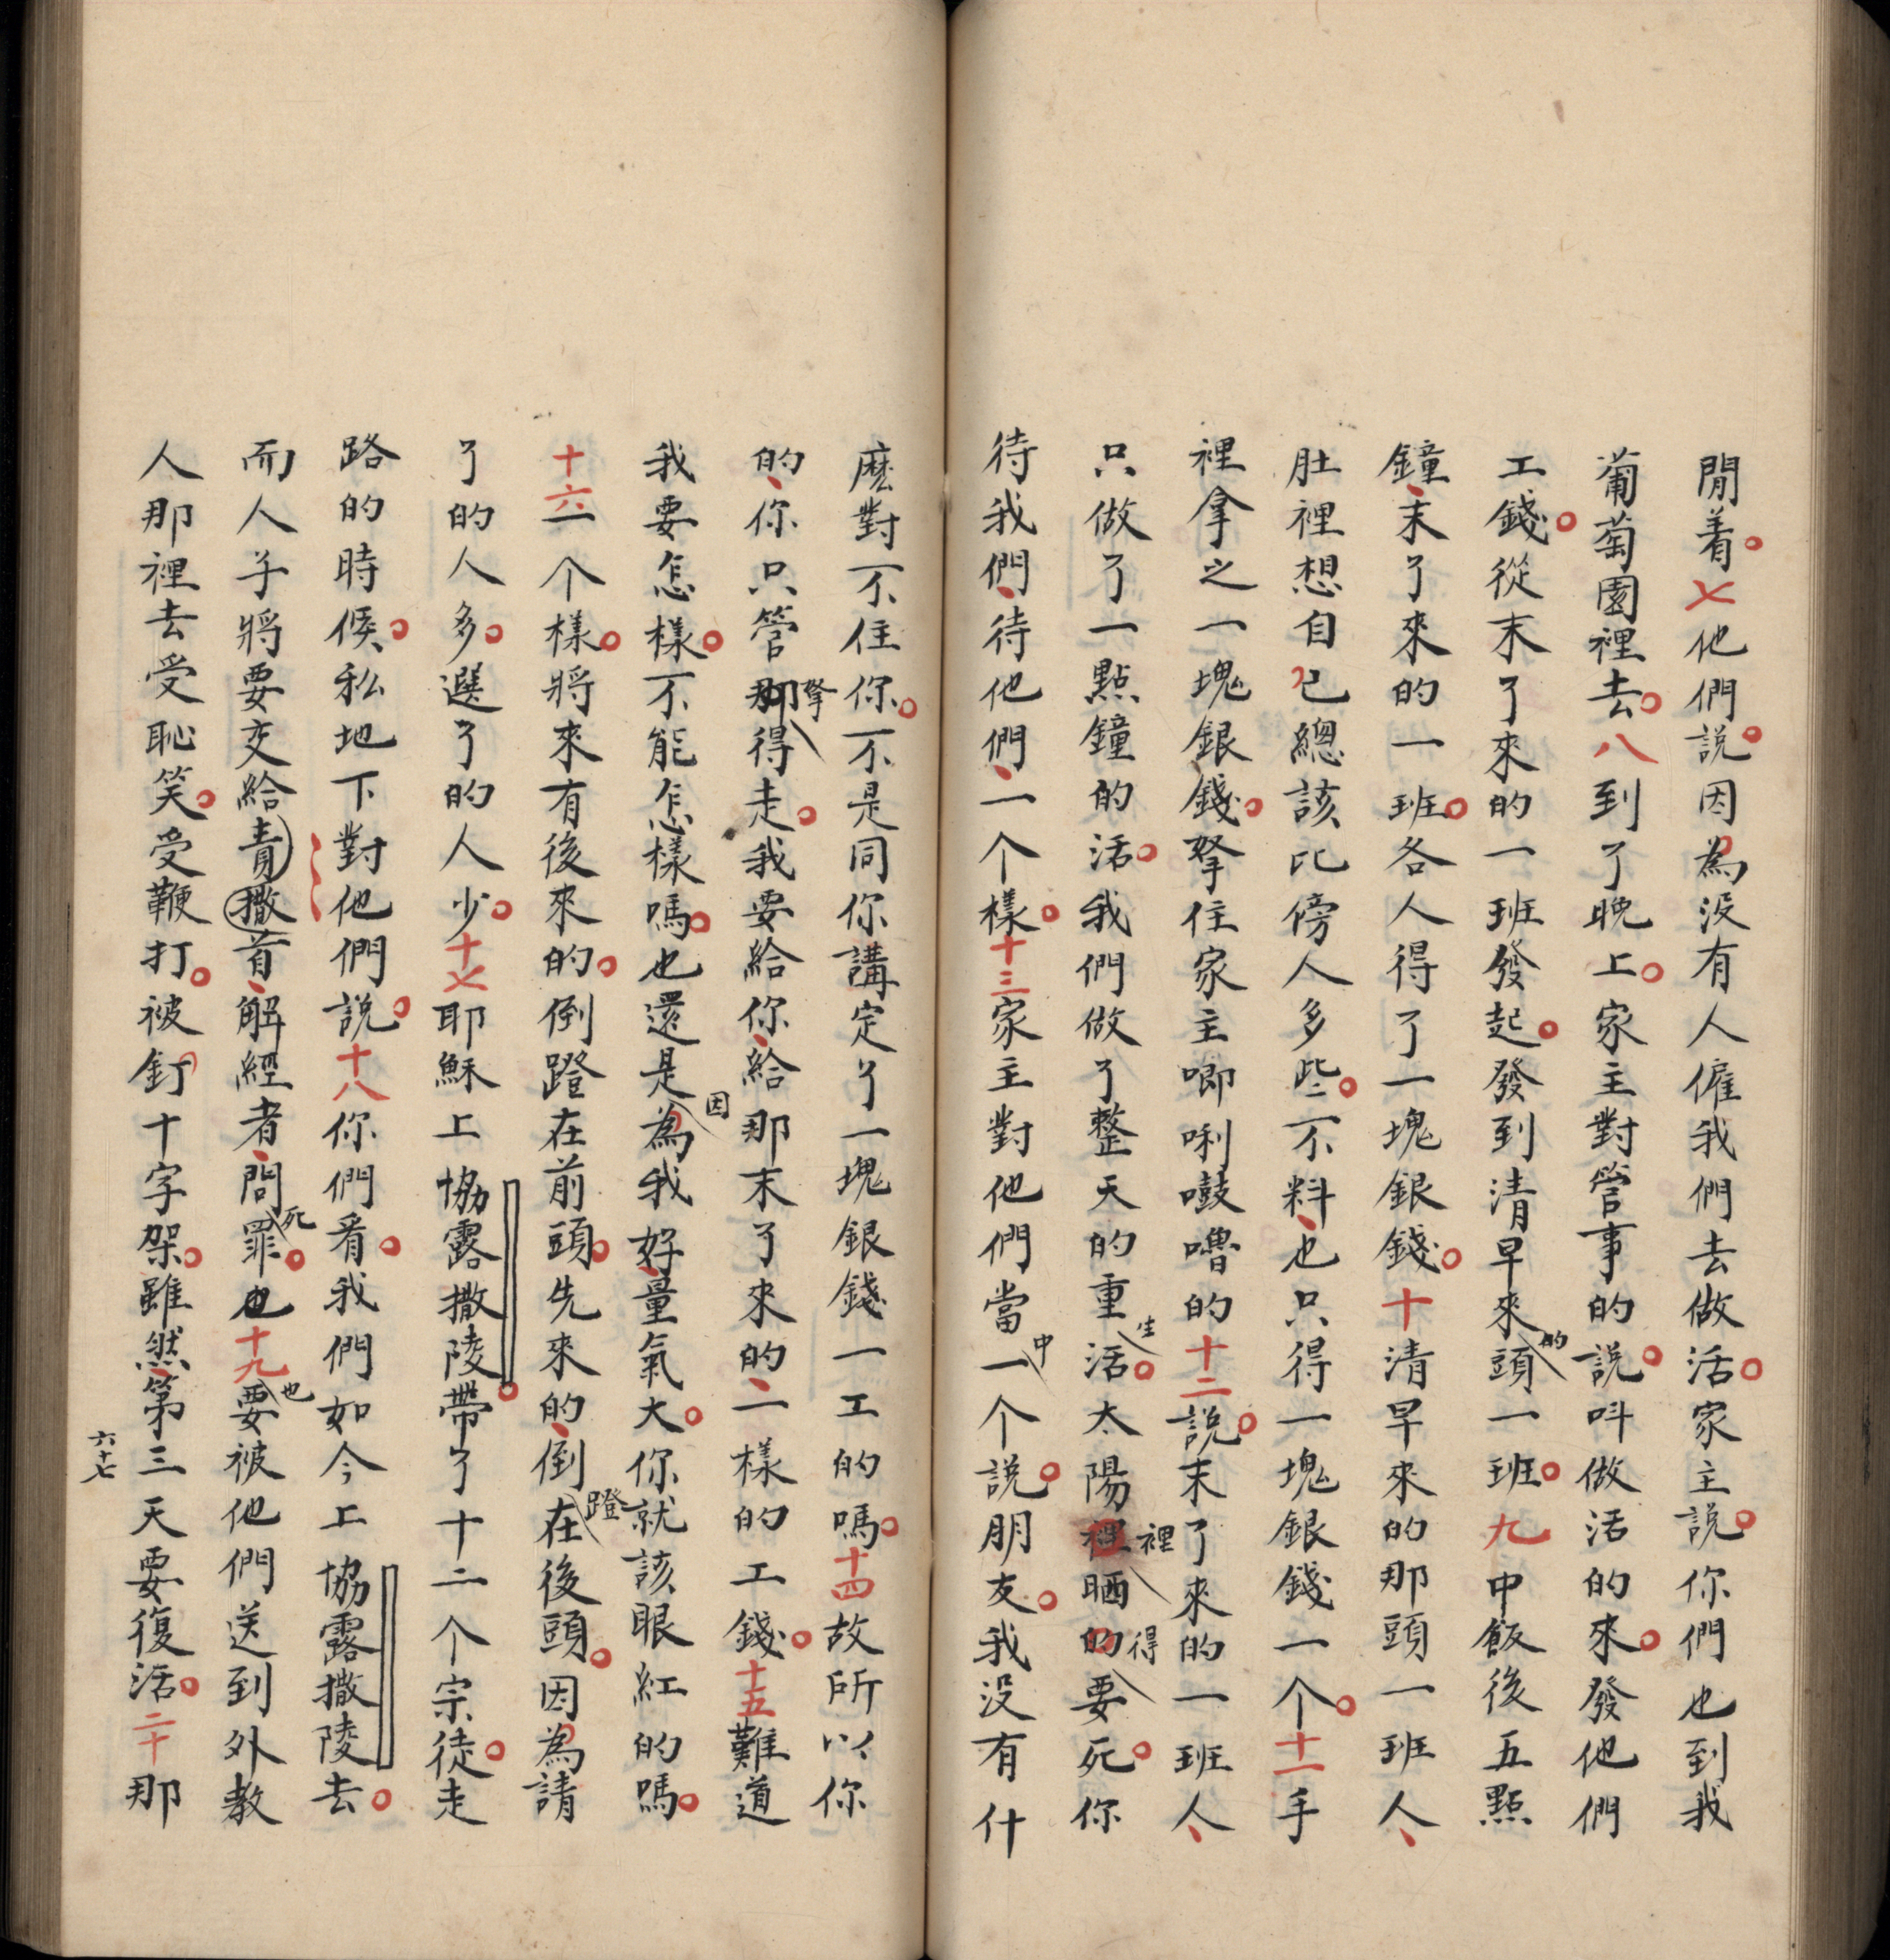 閒着七他們説因為没有人僱我們去做活家主説你們也到我
葡萄園裡去八到了晚上家主對管事的説呌做活的來發他們
工錢從末了來的一班發起發到清早來的頭一班九申飯後五點
鐘末了來的一班各人得了一塊銀錢十清早來的那頭一班人
肚裡想自己總該比傍人多些不料也只得一塊銀錢一个十一手
裡拿之一塊銀錢拏住家主唧唎鼓嚕的十二説末了來的一班人
只做了一點鐘的活我們做了整天的重生活太陽裡裡晒的得要死你
待我們待他們一个樣十三家主對他們當中一个説朋友我没有什
麽對不住你不是同你講定了一塊銀錢一工的嗎十四故所以你
的你只管拏得走我要給你給那末了來的一樣的工錢十五難道
我要怎樣不能怎樣嗎也還是因為我好量氣大你就該眼紅的嗎
十六一个樣將來有後來的倒蹬在前頭先來的倒蹬在後頭因為請
了的人多選了的人少十七耶穌上協露撒陵帶了十二个宗徒走
路的時候私地下對他們説十八你們看我們如今上協露撒陵去
而人子將要交給責撒首解經者問死罪也十九也要被他們送到外教
人那裡去受恥笑受鞭打被釘十字架雖然第三天要復活二十那
六十七